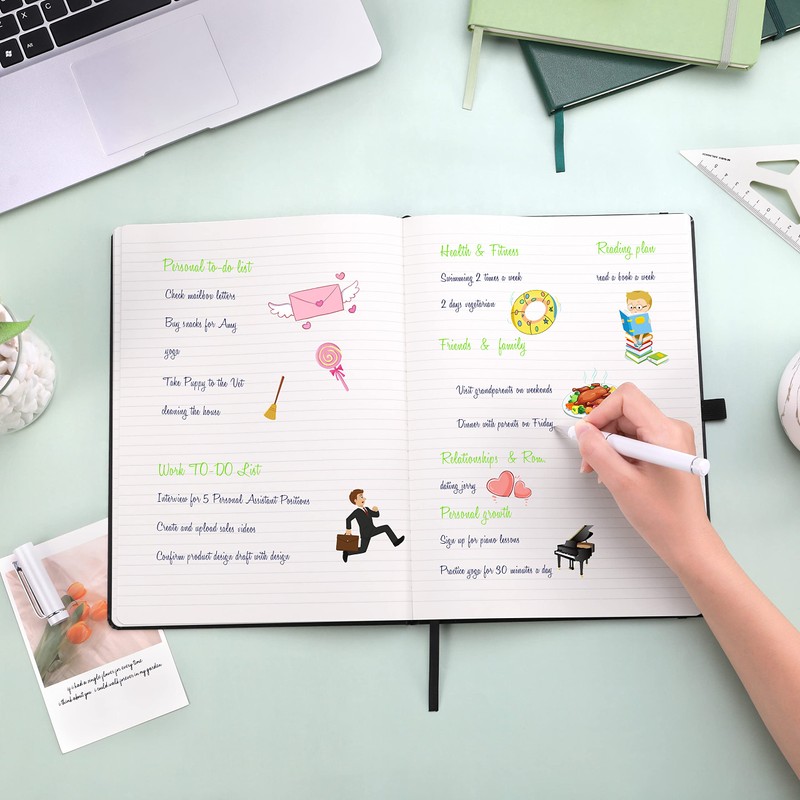 Alt
Personal to-do list
Check mailbox letters
Buy snacks for Amy
yoga
Take Puppy to the Vet
cleaning the house
Work TO-DO List
Interview for 5 Personal Assistant Positions
Create and upload sales videos
Confirm product design draft with design
Health & Fitness
Swimming 2 times a week
2 days vegetarian
Reading plan
read a book a week
Friends & family
Visit grandparents on weekends
Dinner with parents on Friday
Relationships & Rom.
dating jerry
Personal growth
Sign up for piano lessons
Practice yoga for 30 minutes a day
if i had a single flower for every time
i think about you i could walk forever in my garden